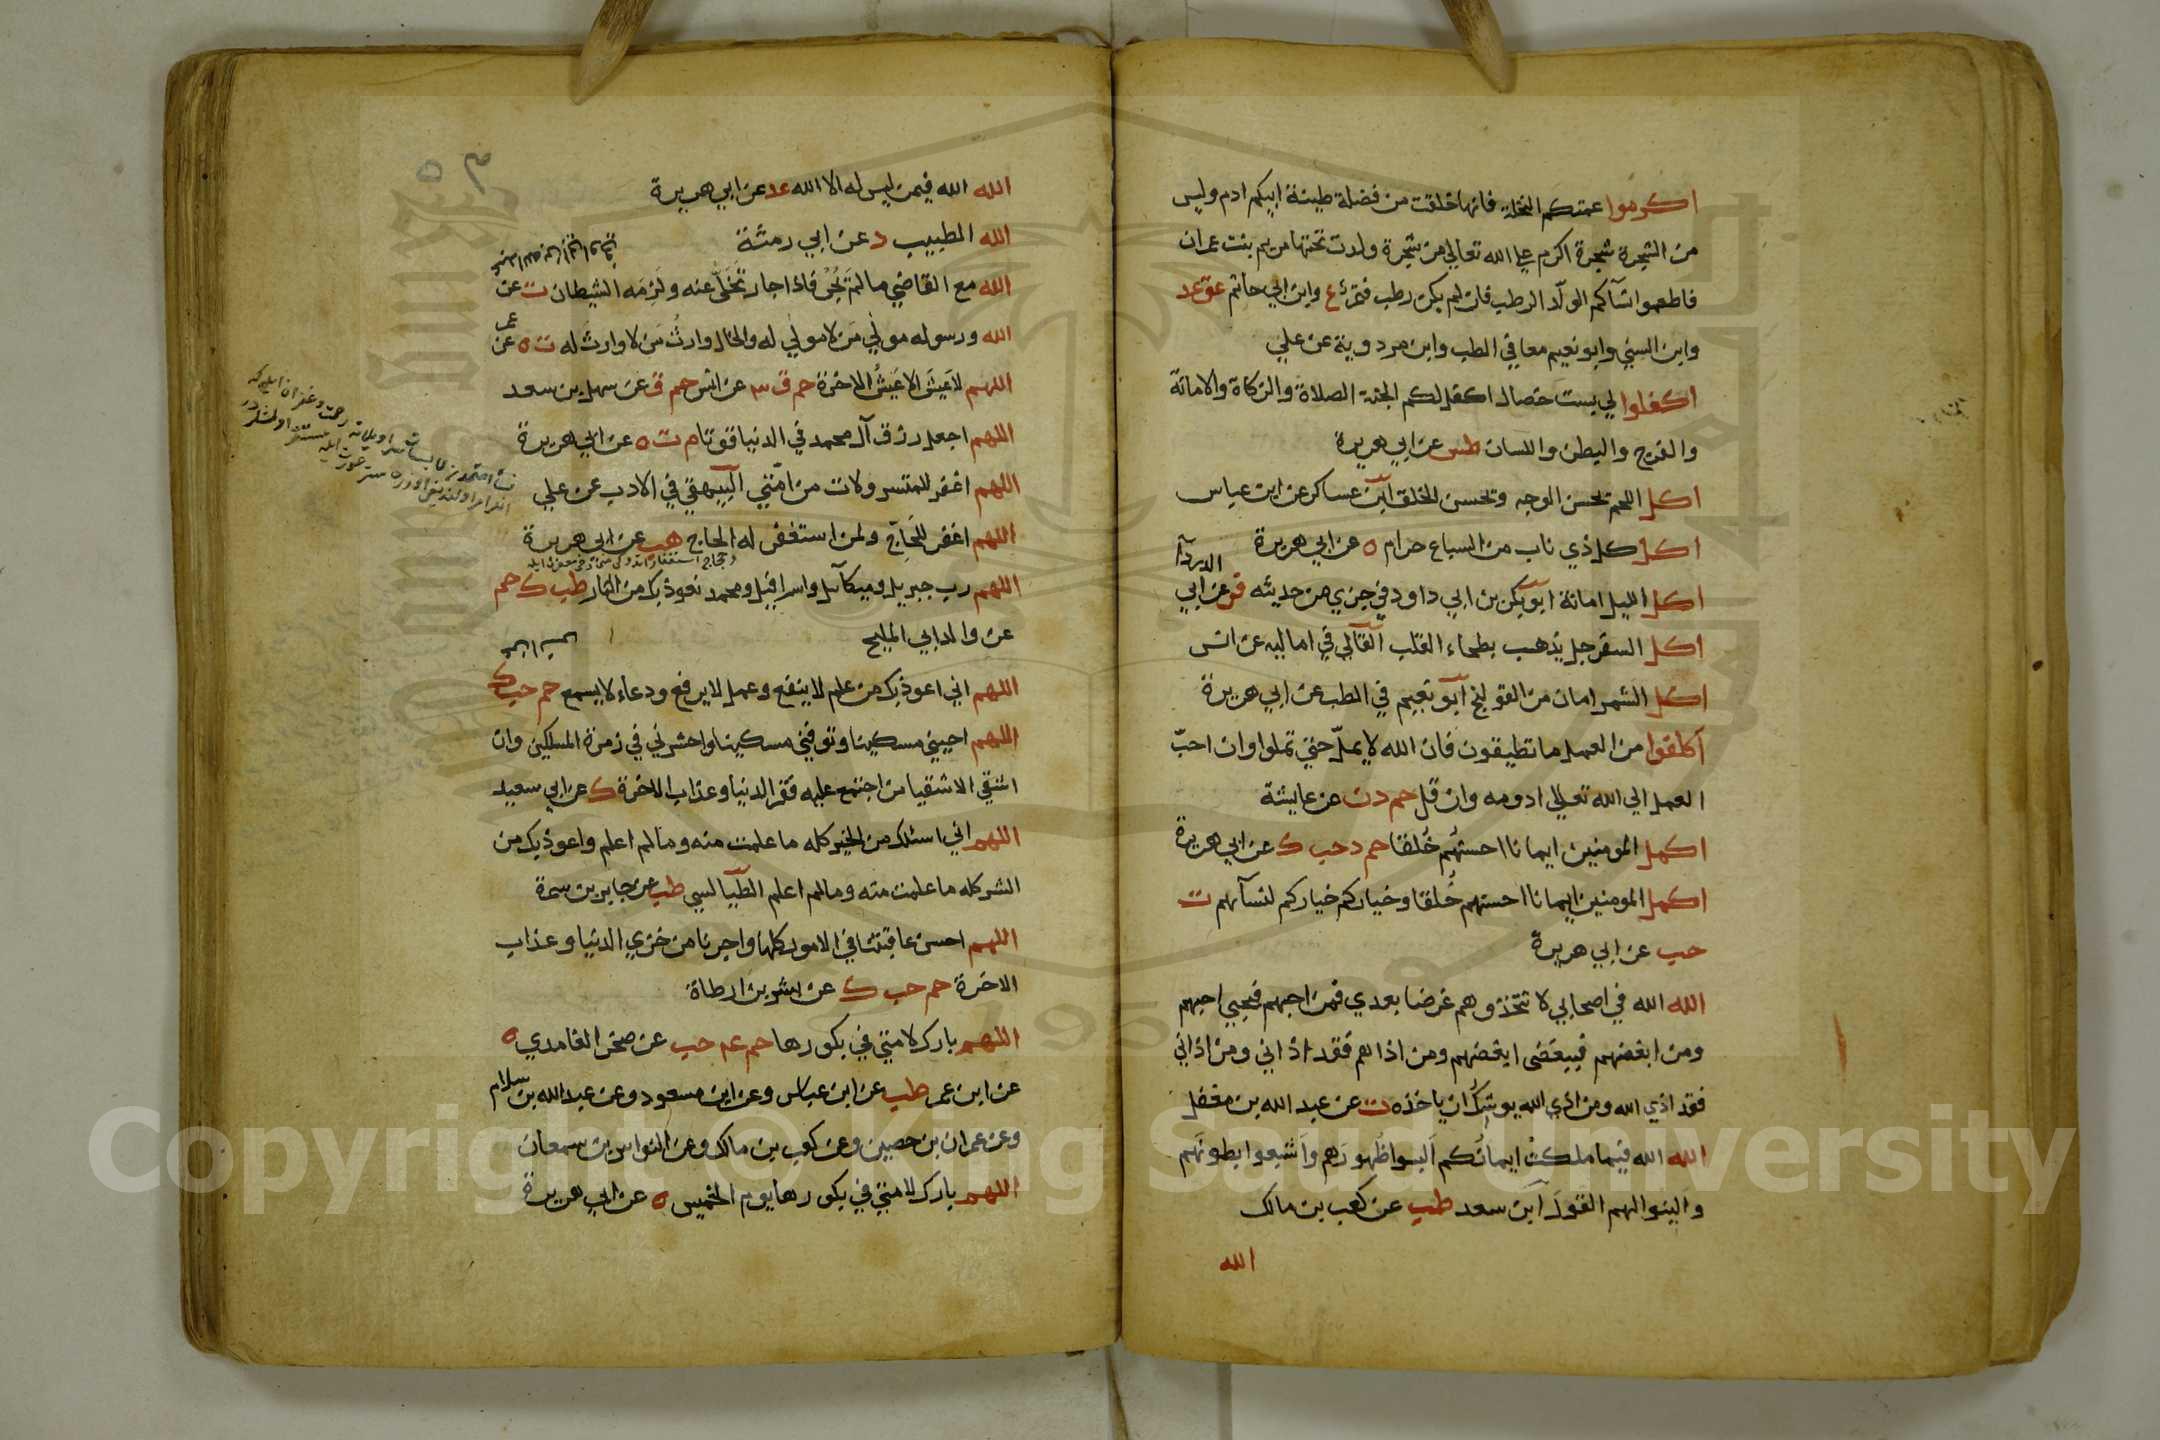 اكرموا عمتكم النخلة فانها خلقت من فضلة طينة ابيكم ادم وليس
من الشجرة شجرة اكرم علي الله تعالي من شجرة ولدت تحتها مريم بنت عمران
فاطعموا نسآكم الولّد الرطب فان لم يكن رطب فتمر ع وابن ابي حاتم عق عد
وابن السني وابو نعيم معا في الطب وابن مردوية عن علي
اكفلوا لي بست خصال اكفل لكم الجنة الصلاة والزكاة والامانة
والفرج والبطن واللسان طس عن ابي هريرة
اكل اللحم يحسن الوجه ويحسن الخلق ابن عساكر عن ابن عباس
اكل كل ذي ناب من السباع حرام ه عن ابي هريرة
اكل الليل امانة ابو بكر بن ابي داود في جزي من حديثه فر عن ابي الدردآ
اكل السفرجل يذهب بطخاء القلب القالي في اماليه عن انس
اكل الشمر امان من القولنج ابو نعيم في الطب عن ابي هريرة
اكلفوا من العمل ما تطيقون فان الله لا يملّ حتي تملوا وان احبّ
العمل الي الله تعالي ادومه وان قل حم د ن عن عايشة
اكمل المومنين ايمانا احسنُهم خُلقا حم د حب ك عن ابي هريرة
اكمل المومنين ايمانا احسنهم خُلقا وخياركم خياركم لنسآئهم ت
حب عن ابي هريرة
الله الله في اصحابي لا تتخذوهم غرضا بعدي فمن احبهم فبحبي احبهم
ومن ابغضهم فببغضى ابغضهم ومن اذاهم فقد اذاني ومن اذاني
فقد اذي الله ومن اذي الله يوشك ان ياخذه ت عن عبد الله بن مغفل
الله الله فيما ملكت ايمانُكم البسوا ظُهورَهم واَشبعوا بطونَهم
واَلينوا لهم القولَ ابن سعد طب عن كعب بن مالك
الله
الله الله فيمن ليس له الا الله عد عن ابي هريرة
الله الطبيب د عن ابي رمثة
الله مع القاضي ما لم يَجُرْ فاذا جار تَخَلَّى عنه ولَزِمَه الشيطان ت عن
الله ورسوله مولي مَن لا مولي له والخال وارثُ مَن لا وارثَ له ت ه عن عمر
اللهم لا عَيشَ الا عَيشُ الاخرة حم ق ٣ عن انس حم ق عن سهل بن سعد
اللهم اجعل رزق آل محمد في الدنيا قوتا م ت ه عن ابي هريرة
اللهم اغفر للمتسرولات من امّتي البيهقي في الادب عن علي
اللهم اغفر للحَاجِّ ولمن استغفر له الحاج هب عن ابي هريرة
اللهم رب جبريل وميكآيل واسرافيل ومحمد نعوذ بك من النار طب ك حم
عن والد ابي المليح
اللهم اني اعوذ بك من علم لا ينفع وعمل لا يرفع ودعاء لا يسمع حم حب ك
اللهم احييني مسكينا وتوفني مسكينا واحشرني في زمرة المساكين وان
اشقي الاشقيا من اجتمع عليه فقر الدنيا وعذاب الاخرة ك عن ابي سعيد
اللهم اني اسئلك من الخير كله ما علمت منه وما لم اعلم واعوذ بك من
الشر كله ما علمت منه وما لم اعلم الطيالسي طب عن جابر بن سمرة
اللهم احسن عاقبتنا في الامور كلها واجرنا من خزي الدنيا وعذاب
الاخرة حم حب ك عن بشر بن ارطاة
اللهم بارك لامتي في بكورها حم عم حب عن صخر الغامدي ه
عن ابن عمر طب عن ابن عباس وعن ابن مسعود وعن عبد الله بن سلام
وعن عمران بن حصين وعن كعب بن مالك وعن النواس بن سمعان
اللهم بارك لامتي في بكورها يوم الخميس ه عن ابي هريرة
Copyright © King Saud University